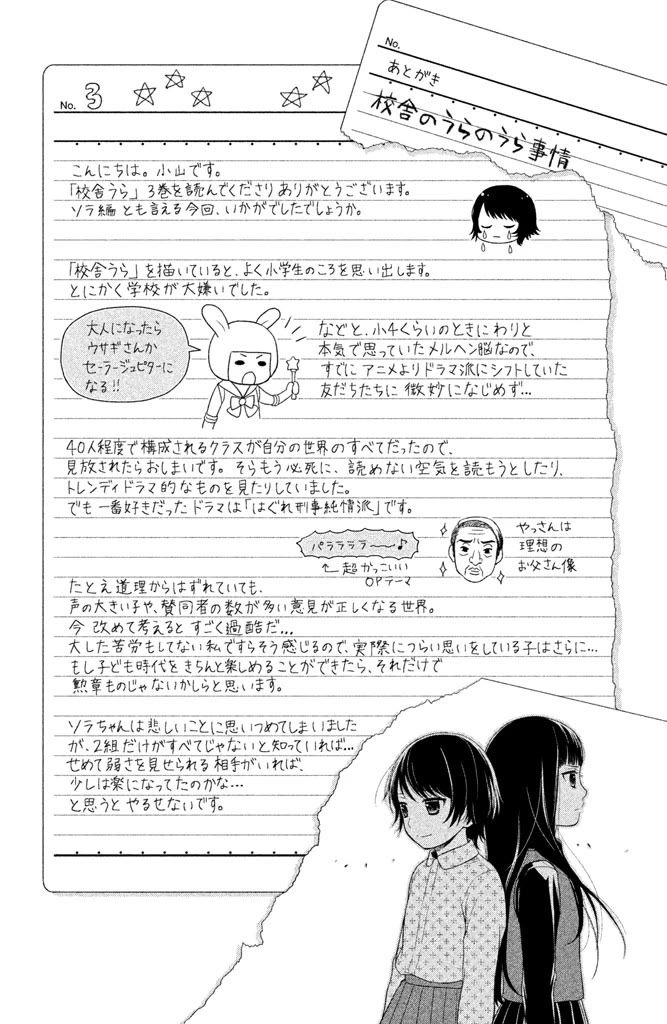 No.
あとがき
校舎のうらのうら事情
No. 3
こんにちは。小山です。
「校舎うら」3巻を読んでくださりありがとうございます。
ソラ編とも言える今回、いかがでしたでしょうか。
「校舎うら」を描いていると、よく小学生のころを思い出します。
とにかく学校が大嫌いでした。
大人になったら
ウサギさんか
セーラージュピターに
なる!!
などと、小4くらいのときにわりと
本気で思っていたメルヘン脳なので、
すでにアニメよりドラマ派にシフトしていた
友だちたちに微妙になじめず…
40人程度で構成されるクラスが自分の世界のすべてだったので、
見放されたらおしまいです。そらもう必死に、読めない空気を読もうとしたり、
トレンディドラマ的なものを見たりしていました。
でも一番好きだったドラマは「はぐれ刑事純情派」です。
パララララ〜〜♪
←超かっこいい
OPテーマ
やっさんは
理想の
お父さん像
たとえ道理からはずれていても、
声の大きい子や、賛同者の数が多い意見が正しくなる世界。
今改めて考えるとすごく過酷だ…
大した苦労もしてない私ですらそう感じるので、実際につらい思いをしている子はさらに…
もし子ども時代をきちんと楽しめることができたら、それだけで
勲章ものじゃないかしらと思います。
ソラちゃんは悲しいことに思いつめてしまいました
が、2組だけがすべてじゃないと知っていれば…
せめて弱さを見せられる相手がいれば、
少しは楽になってたのかな…
と思うとやるせないです。